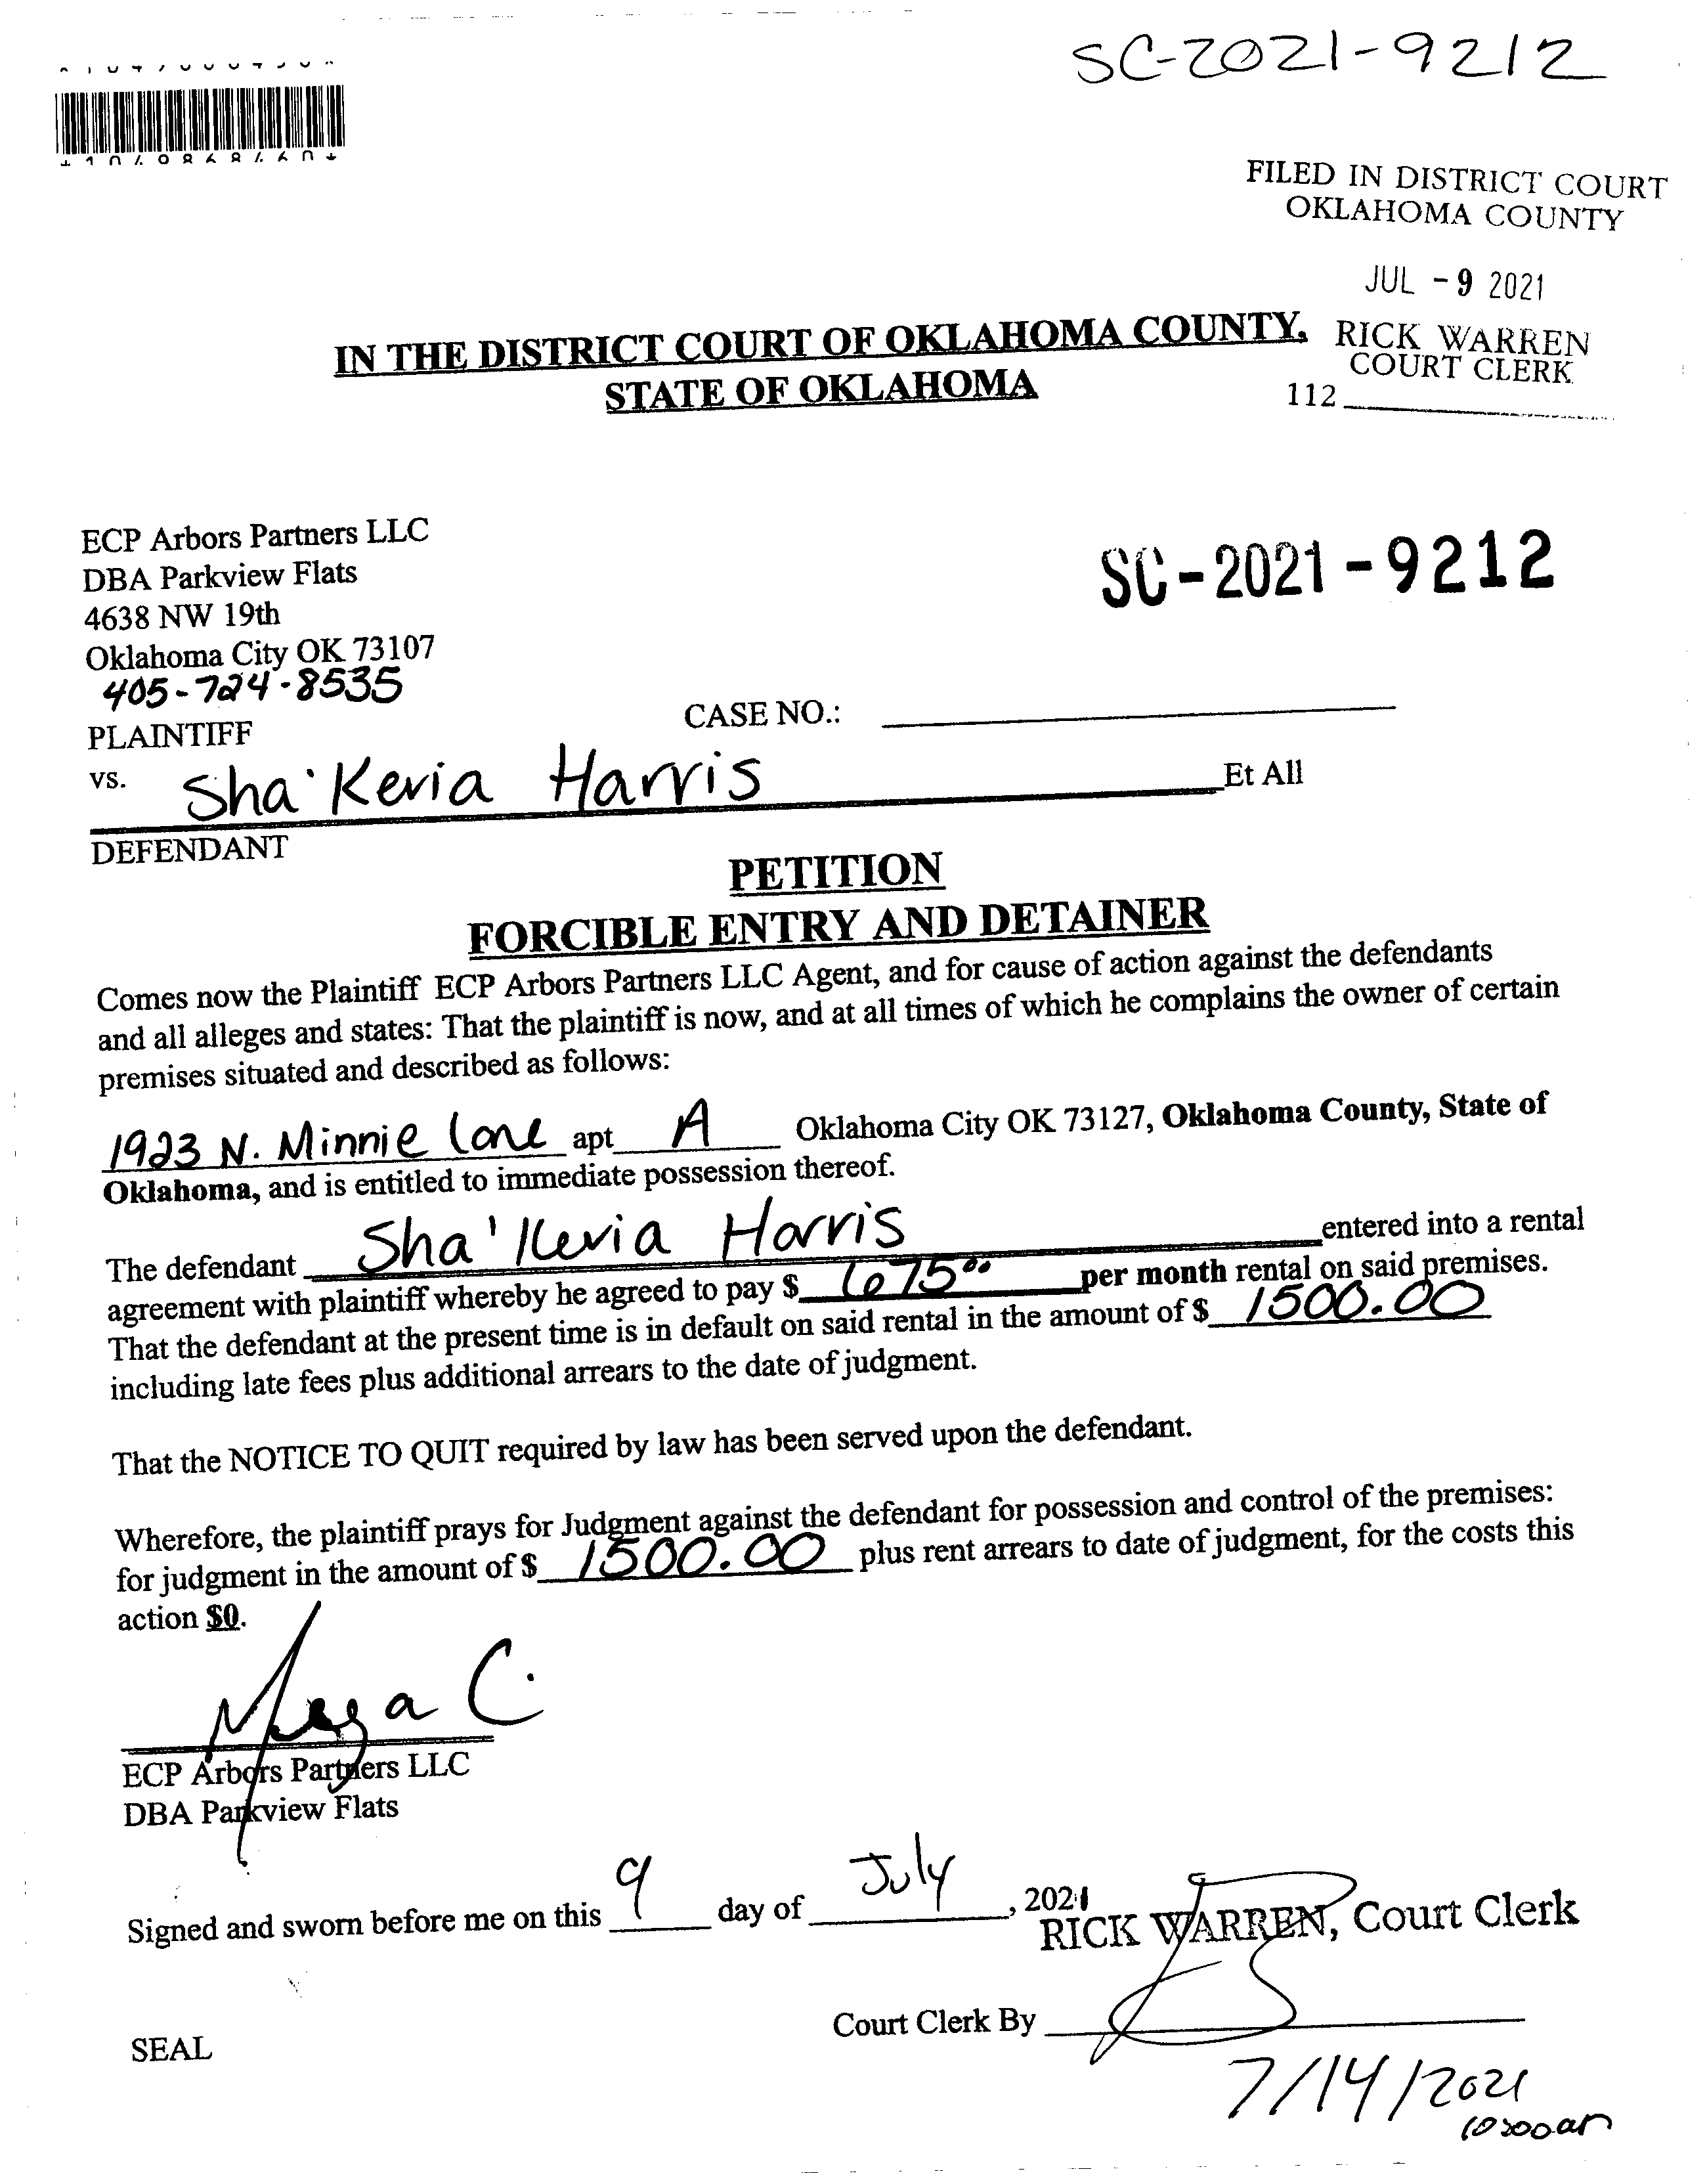 SC-2021-9212
FILED IN DISTRICT COURT
OKLAHOMA COUNTY
JUL - 9 2021
RICK WARREN
COURT CLERK
112
IN THE DISTRICT COURT OF OKLAHOMA COUNTY,
STATE OF OKLAHOMA
ECP Arbors Partners LLC
DBA Parkview Flats
4638 NW 19th
Oklahoma City OK 73107
405-724-8535
SC-2021-9212
PLAINTIFF
CASE NO.:
vs. Sha'Keria Harris Et All
DEFENDANT
PETITION
FORCIBLE ENTRY AND DETAINER
Comes now the Plaintiff ECP Arbors Partners LLC Agent, and for cause of action against the defendants
and all alleges and states: That the plaintiff is now, and at all times of which he complains the owner of certain
premises situated and described as follows:
1923 N. Minnie Lane apt A Oklahoma City OK 73127, Oklahoma County, State of
Oklahoma, and is entitled to immediate possession thereof.
The defendant Sha'Keria Harris entered into a rental
agreement with plaintiff whereby he agreed to pay $ 675.00 per month rental on said premises.
That the defendant at the present time is in default on said rental in the amount of $ 1500.00
including late fees plus additional arrears to the date of judgment.
That the NOTICE TO QUIT required by law has been served upon the defendant.
Wherefore, the plaintiff prays for Judgment against the defendant for possession and control of the premises:
for judgment in the amount of $ 1500.00 plus rent arrears to date of judgment, for the costs this
action $0.
ECP Arbors Partners LLC
DBA Parkview Flats
Signed and sworn before me on this 9 day of July, 2021
RICK WARREN, Court Clerk
Court Clerk By
SEAL
7/14/2021
10:00am